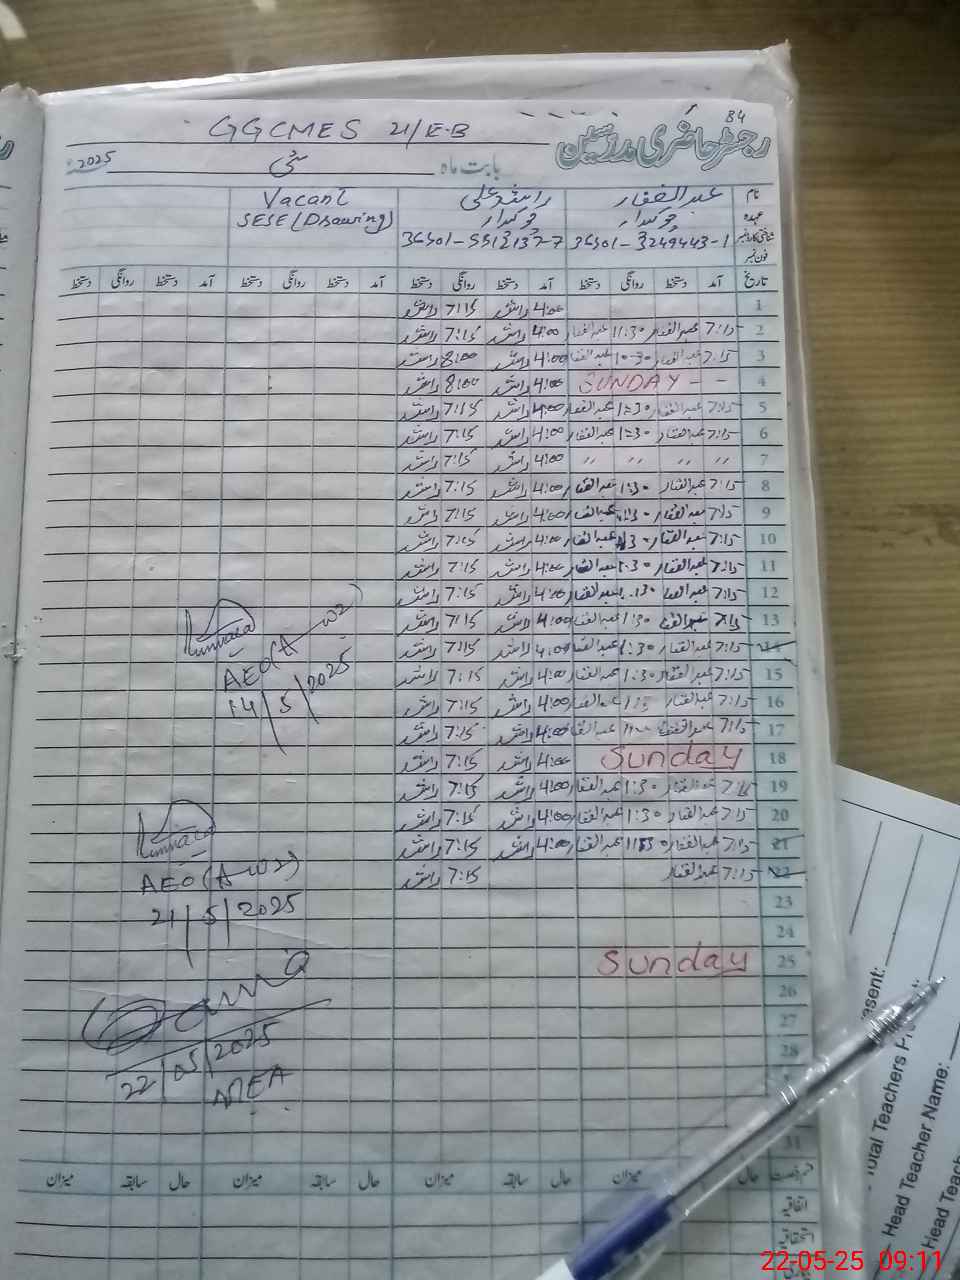 84
رجسٹر حاضری مدرسین
GGCMES 21/E-B
بابت ماہ مئی 2025
نام عبدالغفار راشد علی Vacant
عہدہ چوکیدار چوکیدار SESE (Drawing)
شناختی کارڈ نمبر 36501-3249443-1 36501-5512137-7
فون نمبر
تاریخ آمد دستخط روانگی دستخط آمد دستخط روانگی دستخط آمد دستخط روانگی دستخط آمد روانگی دستخط
1 4:00 راشد 7:15 راشد
2 7:15 عبدالغفار 11:30 عبدالغفار 4:00 راشد 7:15 راشد
3 7:15 عبدالغفار 10-30 عبدالغفار 4:00 راشد 8:00 راشد
4 - - SUNDAY 4:00 راشد 8:00 راشد
5 7:15 عبدالغفار 1:30 عبدالغفار 4:00 راشد 7:15 راشد
6 7:15 عبدالغفار 1:30 عبدالغفار 4:00 راشد 7:15 راشد
7 〃 〃 〃 〃 4:00 راشد 7:15 راشد
8 7:15 عبدالغفار 1:30 عبدالغفار 4:00 راشد 7:15 راشد
9 7:15 عبدالغفار 1:30 عبدالغفار 4:00 راشد 7:15 راشد
10 7:15 عبدالغفار عبدالغفار 4:00 راشد 7:15 راشد
11 7:15 عبدالغفار 1:30 عبدالغفار 4:00 راشد 7:15 راشد
12 7:15 عبدالغفار 1:30 عبدالغفار 4:00 راشد 7:15 راشد
13 7:15 عبدالغفار 1:30 عبدالغفار 4:00 راشد 7:15 راشد
14 7:15 عبدالغفار 1:30 عبدالغفار 4:00 راشد 7:15 راشد
15 7:15 عبدالغفار 1:30 عبدالغفار 4:00 راشد 7:15 راشد
16 7:15 عبدالغفار عبدالغفار 4:00 راشد 7:15 راشد
17 7:15 عبدالغفار عبدالغفار 4:00 راشد 7:15 راشد
18 Sunday 4:00 راشد 7:15 راشد
19 7:15 عبدالغفار 1:30 عبدالغفار 4:00 راشد 7:15 راشد
20 7:15 عبدالغفار 1:30 عبدالغفار 4:00 راشد 7:15 راشد
21 7:15 عبدالغفار عبدالغفار 4:00 راشد 7:15 راشد
22 7:15 عبدالغفار 7:15 راشد
23
24
25 Sunday
26
27
28
31
AEO (A-W2)
14/5/2025
AEO (A-W2)
21/5/2025
22/05/2025
MEA
حال سابقہ میزان حال سابقہ میزان حال سابقہ میزان
اتفاقیہ
استحقاقیہ
Total Teachers
Head Teacher Name:
Head
22-05-25 09:11